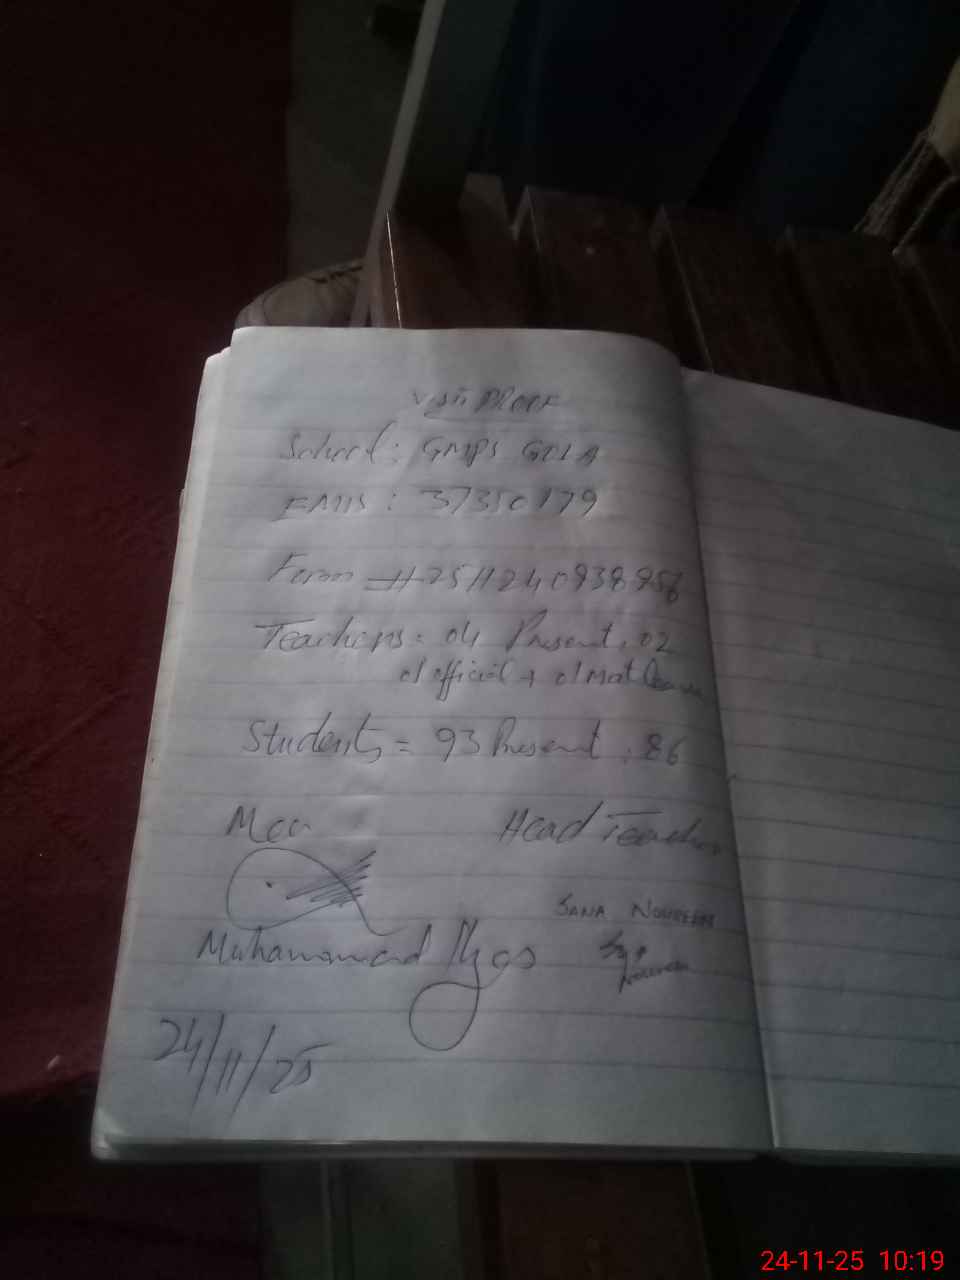 Visit PROOF
School: GMPS GOLA
EMIS: 37350179
Form #
Teachers = 04 Present: 02
01 official + 01 Mat Leave
Students = 93 Present: 86
Mea
Head Teacher
SANA NOUREEN
Muhammad Ilyas
Noureen
24/11/25
24-11-25 10:19